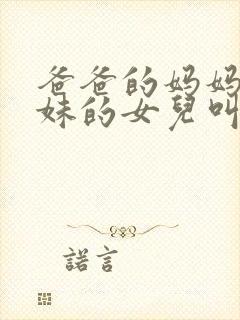 爸爸的妈妈
妹的女兒叫
諾言